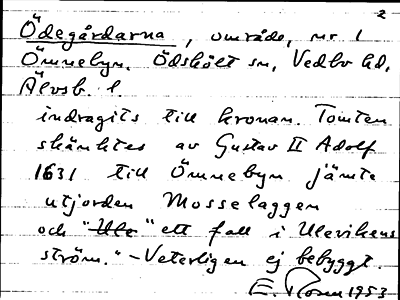 2
Ödegårdarna, område, nr 1
Ömmebyn. Ödskölt sn, Vedbo hd,
Älvsb. l.
indragits till kronan. Tomten
skänktes av Gustav II Adolf
1631 till Ömmebyn jämte
utjorden Mosselaggen
och "Ule" ett fall i Ulevikens
ström." - Veterligen ej bebyggt.
E. Rosm 1953